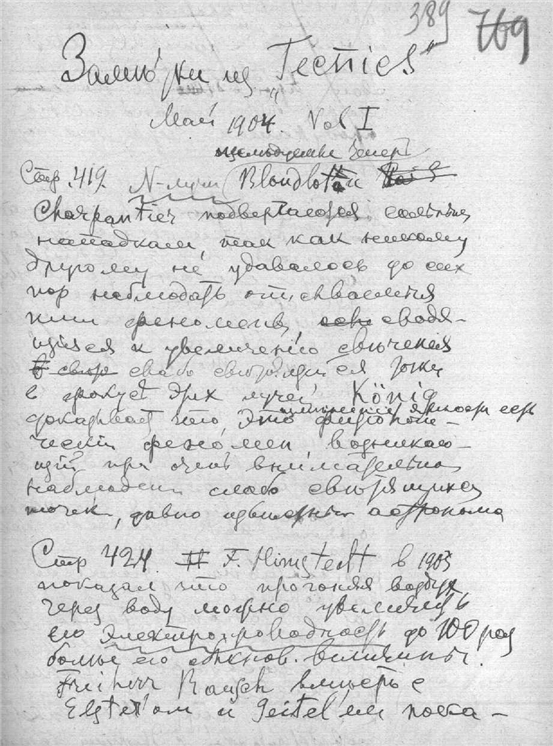 389 769
Замѣтки из
Май 1904. Vol I
Стр. 419. N-лучи Blondlot и
Charpantier подвергаются сильным
нападкам, так как никому
другому не удавалось до сих
пор наблюдать описываемыя
ими феномены, сводя-
щиеся к увеличению свечения
слабо светящейся точки
в фокусе этих лучей. König
доказывает что, это физиологи-
ческий феномен возникаю-
щий при очень внимательном
наблюдении слабо светящихся
точек, давно астронома
Стр 424. # F. Himstedt в 1903
показал что прогоняя воздух
через воду можно увеличить
его электропроводность до 100 раз
более его обыкнов. величины.
Freiherr Rausch вместе с
Elster'ом и Geitel'ем пока-